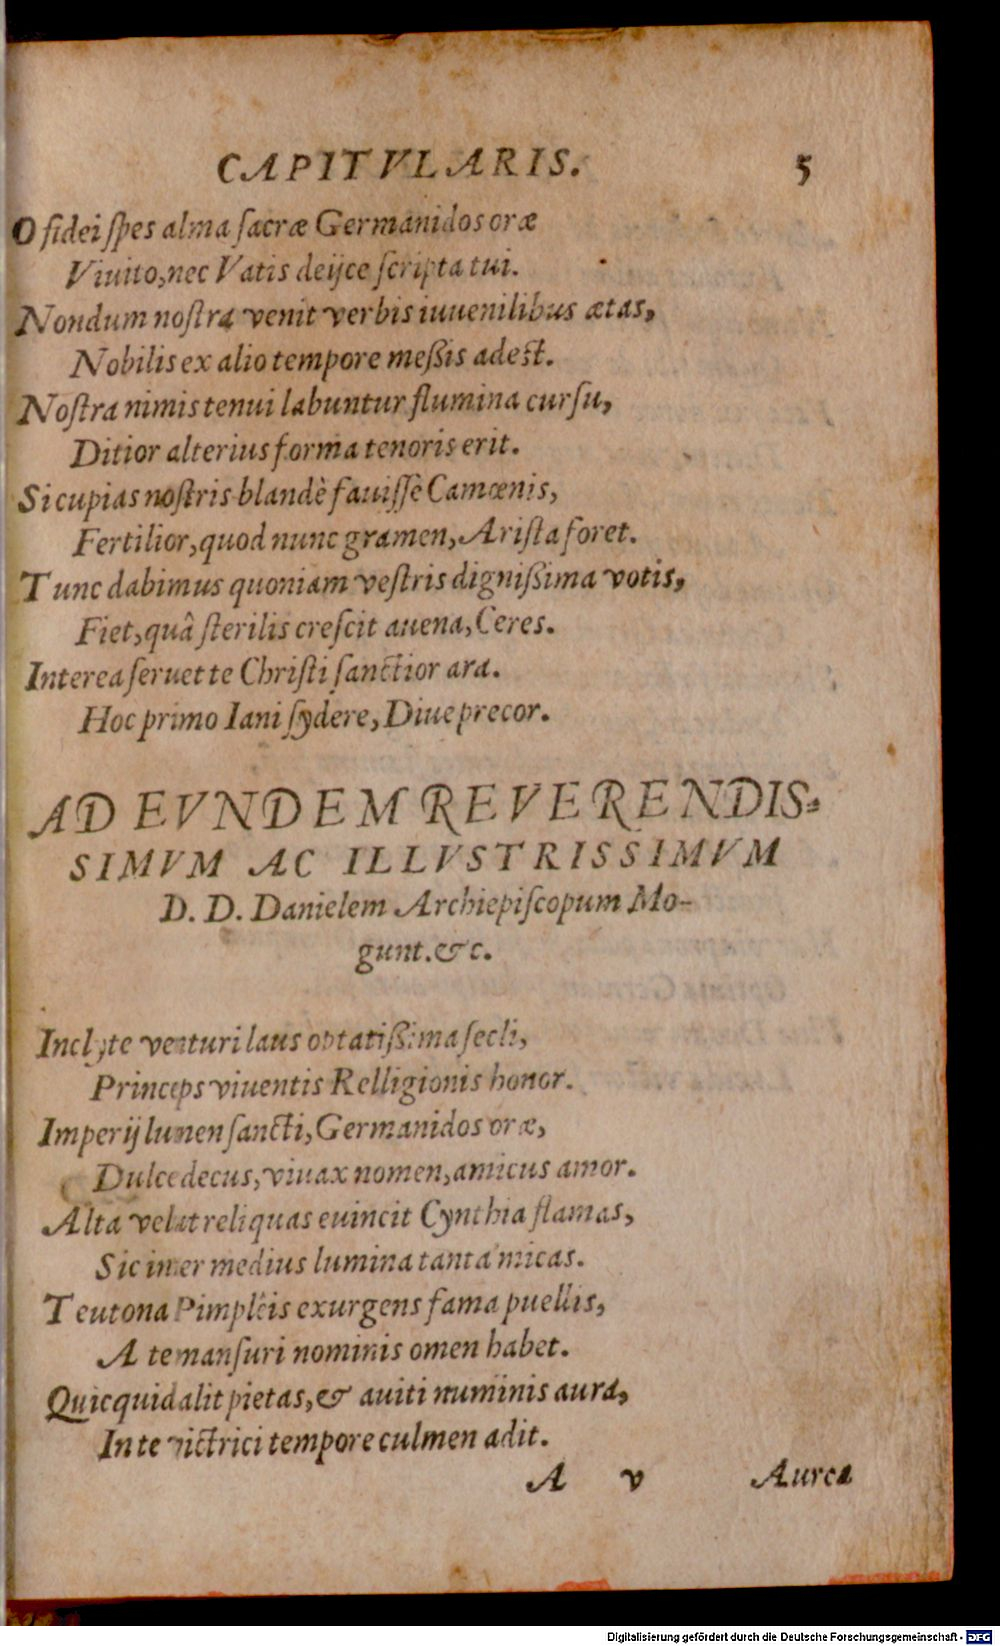 CAPITVLARIS. 5
O fidei ſpes alma ſacræ Germanidos oræ
Viuito, nec Vatis deijce ſcripta tui.
Nondum noſtra venit verbis iuuenilibus ætas,
Nobilis ex alio tempore meßis adest.
Noſtra nimis tenui labuntur flumina curſu,
Ditior alterius forma tenoris erit.
Si cupias noſtris blandè fauiſſè Camœnis,
Fertilior, quod nunc gramen, Ariſta foret.
Tunc dabimus quoniam veſtris dignißima votis,
Fiet, quâ ſterilis creſcit auena, Ceres.
Interea ſeruet te Chriſti ſanctior ara.
Hoc primo Iani ſydere, Diue precor.
AD EVNDEM REVERENDIS-
SIMVM AC ILLVSTRISSIMVM
D. D. Danielem Archiepiſcopum Mo-
gunt. &c.
Inclyte venturi laus optatißima ſecli,
Princeps viuentis Relligionis honor.
Imperij lumen ſancti, Germanidos oræ,
Dulce decus, viuax nomen, amicus amor.
Alta velut reliquas euincit Cynthia flamas,
Sic inter medius lumina tanta micas.
Teutona Pimpleis exurgens fama puellis,
A te manſuri nominis omen habet.
Quicquid alit pietas, & auiti numinis aura,
In te victrici tempore culmen adit.
A v Aurea
Digitalisierung gefördert durch die Deutsche Forschungsgemeinschaft - DFG